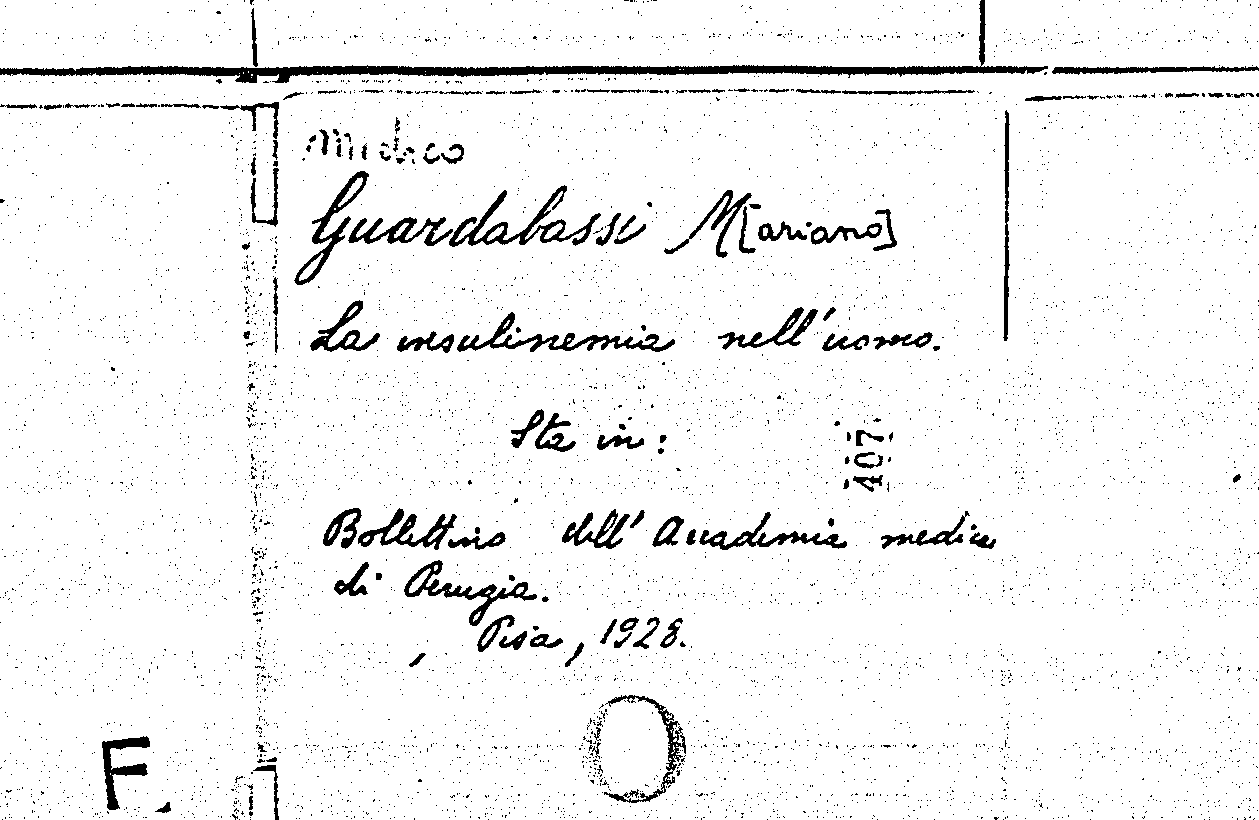 Medico
Guardabassi M[ariano]
La insulinemia nell'uomo.
Sta in:
407
Bollettino dell'Accademia medica
di Perugia.
, Pisa, 1928.
F.